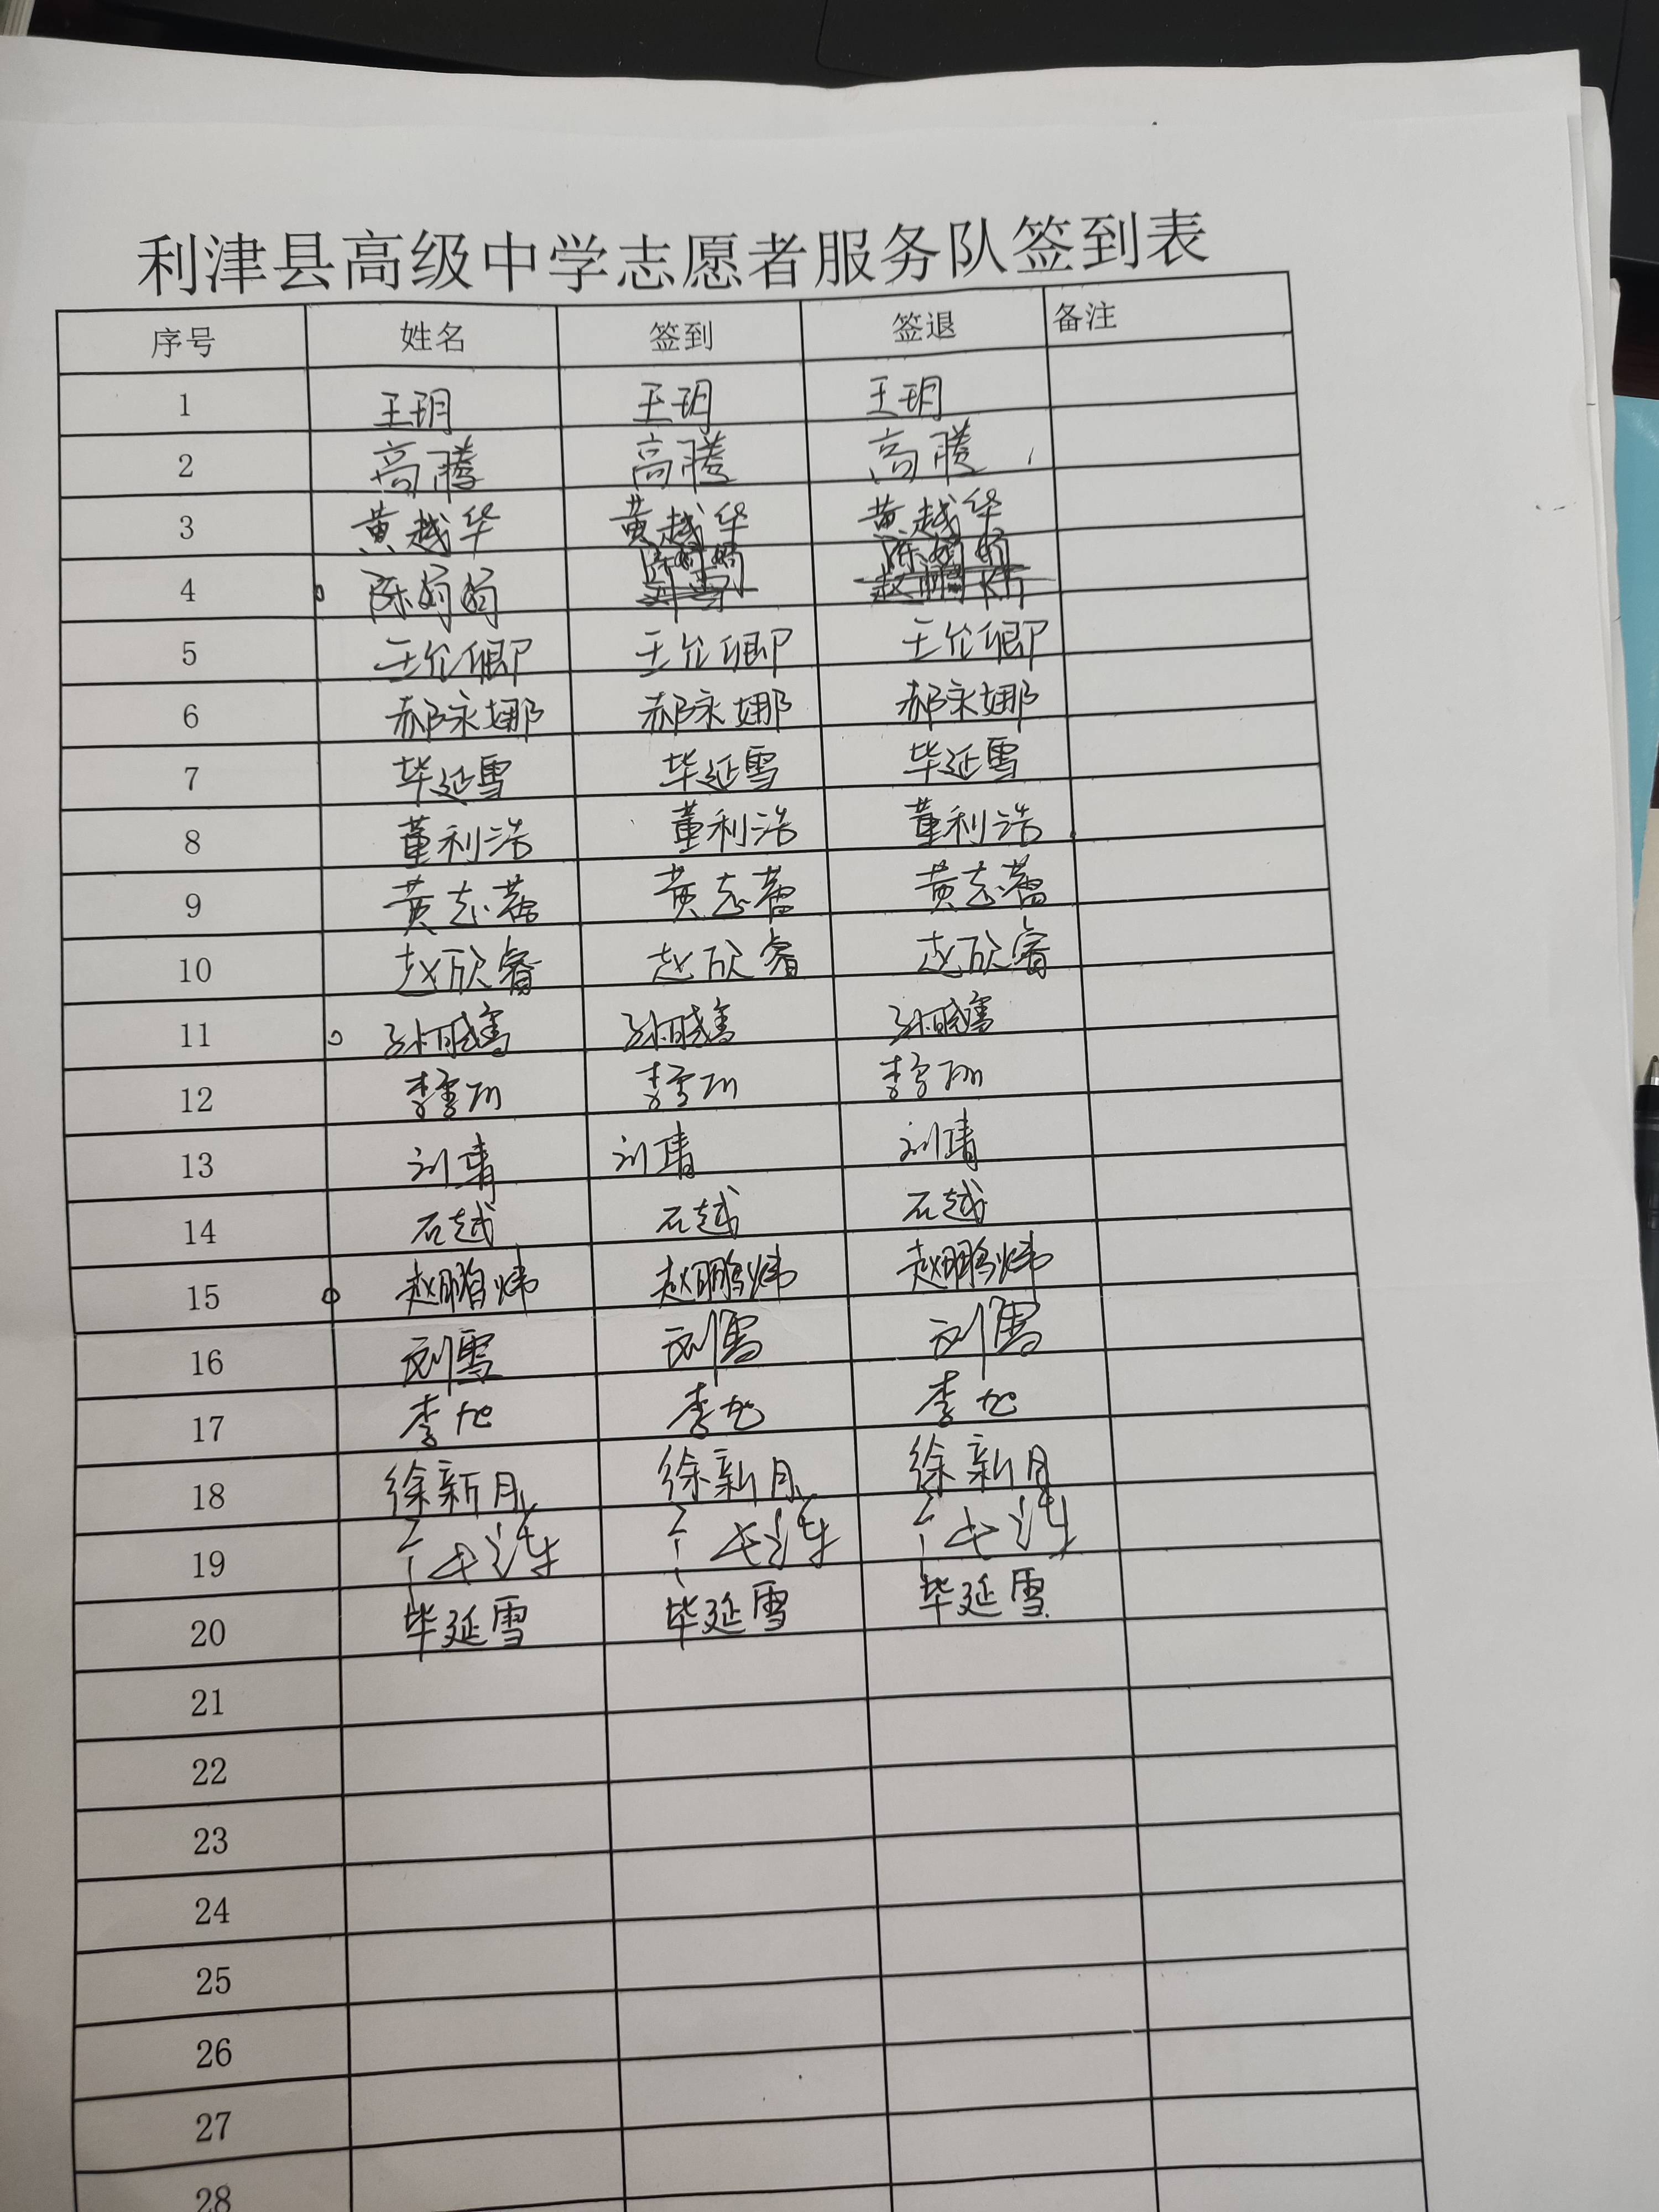 利津县高级中学志愿者服务队签到表
序号 姓名 签到 签退 备注
1 王玥 王玥 王玥
2 高腾 高腾 高腾
3 黄越华 黄越华 黄越华
4 陈娟娟 陈娟娟 陈娟娟
5 王伦卿 王伦卿 王伦卿
6 郝永娜 郝永娜 郝永娜
7 毕延雪 毕延雪 毕延雪
8 董利浩 董利浩 董利浩
9 黄志蕾 黄志蕾 黄志蕾
10 赵欣睿 赵欣睿 赵欣睿
11
12
13 刘靖 刘靖 刘靖
14 石越 石越 石越
15 赵鹏炜 赵鹏炜 赵鹏炜
16 刘雪 刘雪 刘雪
17 李旭 李旭 李旭
18 徐新月 徐新月 徐新月
19
20 毕延雪 毕延雪 毕延雪
21
22
23
24
25
26
27
28